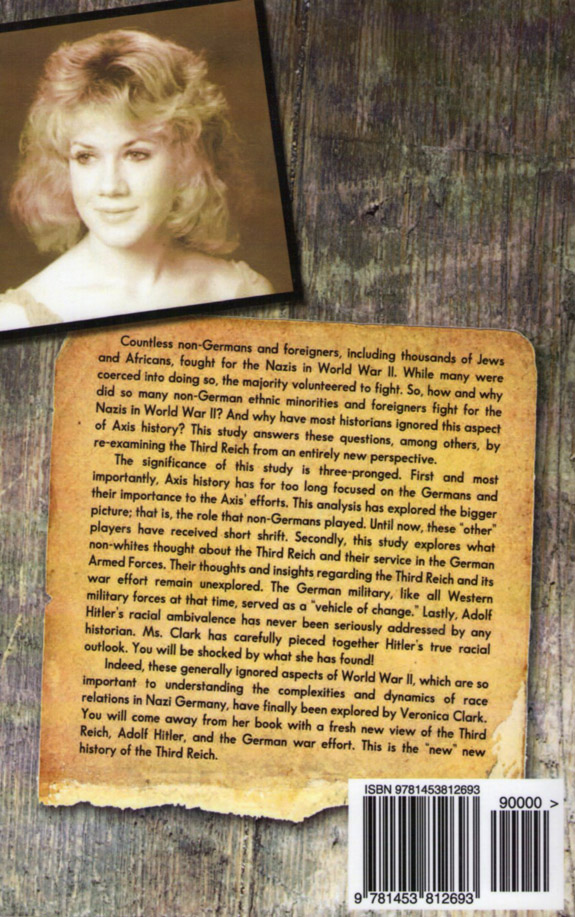 Countless non-Germans and foreigners, including thousands of Jews
and Africans, fought for the Nazis in World War II. While many were
coerced into doing so, the majority volunteered to fight. So, how and why
did so many non-German ethnic minorities and foreigners fight for the
Nazis in World War II? And why have most historians ignored this aspect
of Axis history? This study answers these questions, among others, by
re-examining the Third Reich from an entirely new perspective.
The significance of this study is three-pronged. First and most
importantly, Axis history has for too long focused on the Germans and
their importance to the Axis' efforts. This analysis has explored the bigger
picture; that is, the role that non-Germans played. Until now, these "other"
players have received short shrift. Secondly, this study explores what
non-whites thought about the Third Reich and their service in the German
Armed Forces. Their thoughts and insights regarding the Third Reich and its
war effort remain unexplored. The German military, like all Western
military forces at that time, served as a "vehicle of change." Lastly, Adolf
Hitler's racial ambivalence has never been seriously addressed by any
historian. Ms. Clark has carefully pieced together Hitler's true racial
outlook. You will be shocked by what she has found!
Indeed, these generally ignored aspects of World War II, which are so
important to understanding the complexities and dynamics of race
relations in Nazi Germany, have finally been explored by Veronica Clark.
You will come away from her book with a fresh new view of the Third
Reich, Adolf Hitler, and the German war effort. This is the "new" new
history of the Third Reich.
ISBN 9781453812693
90000 >
9 781453 812693